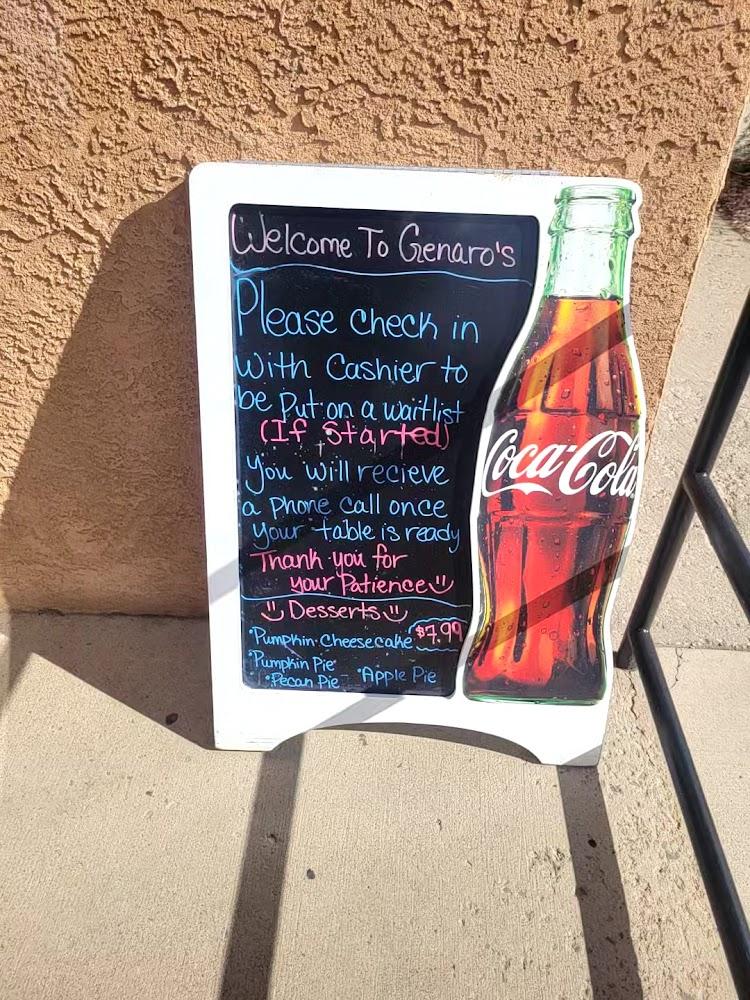 Welcome To Genaro's
Please check in
with Cashier to
be put on a waitlist
(If Started)
You will recieve
a phone call once
your table is ready
Thank you for
your Patience
Desserts
•Pumpkin Cheesecake $7.99
•Pumpkin Pie
•Pecan Pie •Apple Pie
Coca-Cola